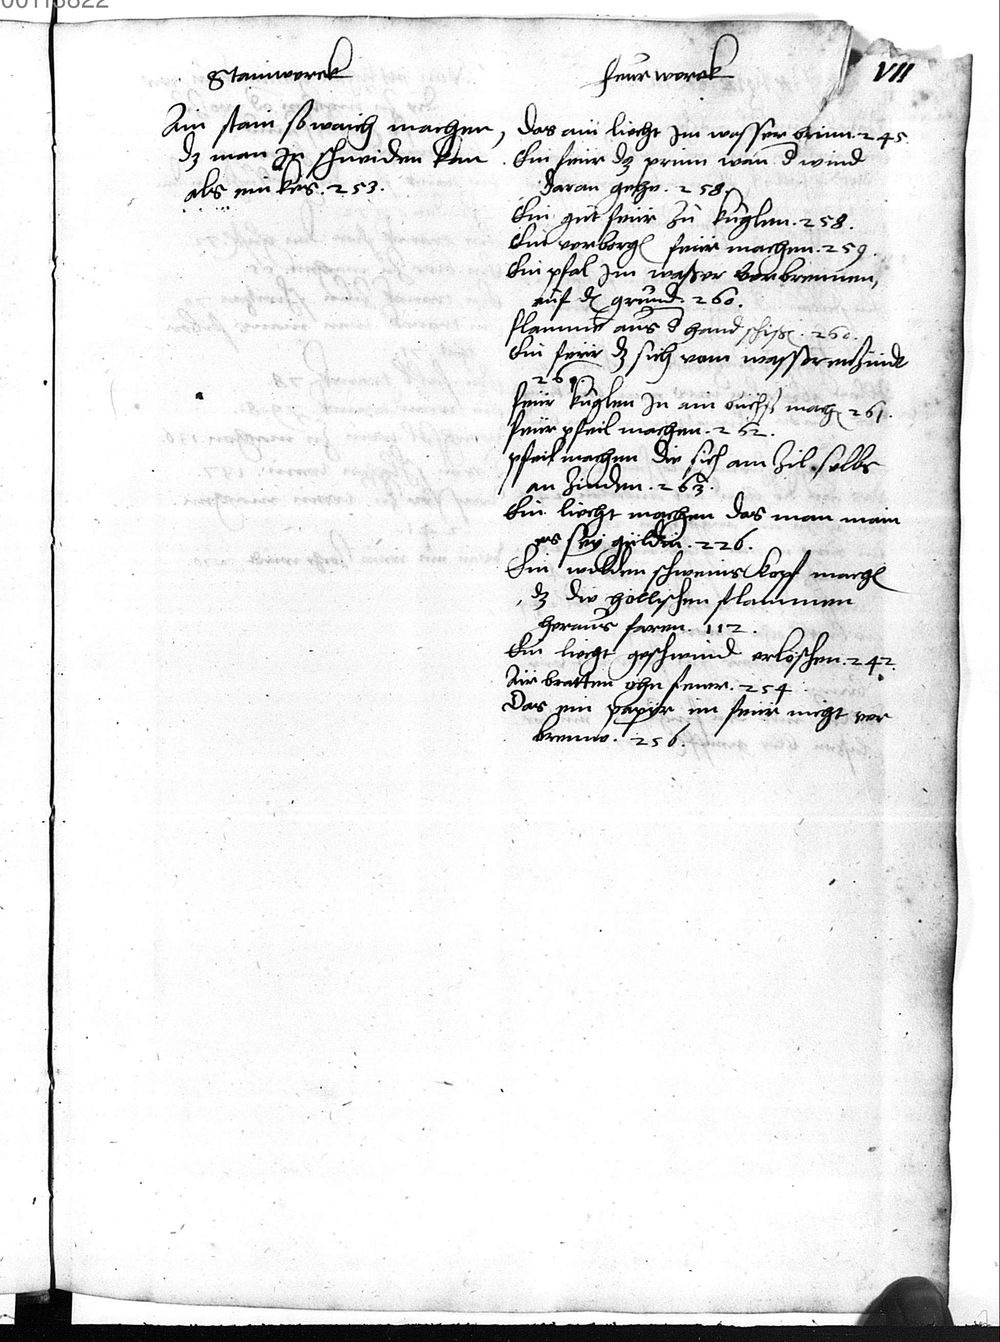 VII
Stainworck
Ain stain so waich machen,
dz man jn schneiden kan
als ein kes. 253.
Feurworck
Das ain liecht jm wasser brinn. 245.
Ein feür dz prinn wan d wind
daran gehe. 258.
Ein güt feür zü küglen. 258.
Ein verborge feür machen. 259.
Ein pfal jm wasser verbrennen,
auf de grund. 260.
flammen aus d hand schiße. 260.
Ein feür dz sich vom wasser entzindt
261
feür küglen jn am mache 261.
feür pfeil machen. 262.
pfeil machen die sich am zil selbs
an zinden. 263.
Ein liecht machen das man main
es sey guldin. 226.
Ein wilden schweins kopf mache
dz die hollischen flammen
heraus faren. 112.
Ein liecht geschwind erloschen. 242.
Air bratten ohn feuer. 254
Das ein papir im feür nicht ver
brenne. 256.